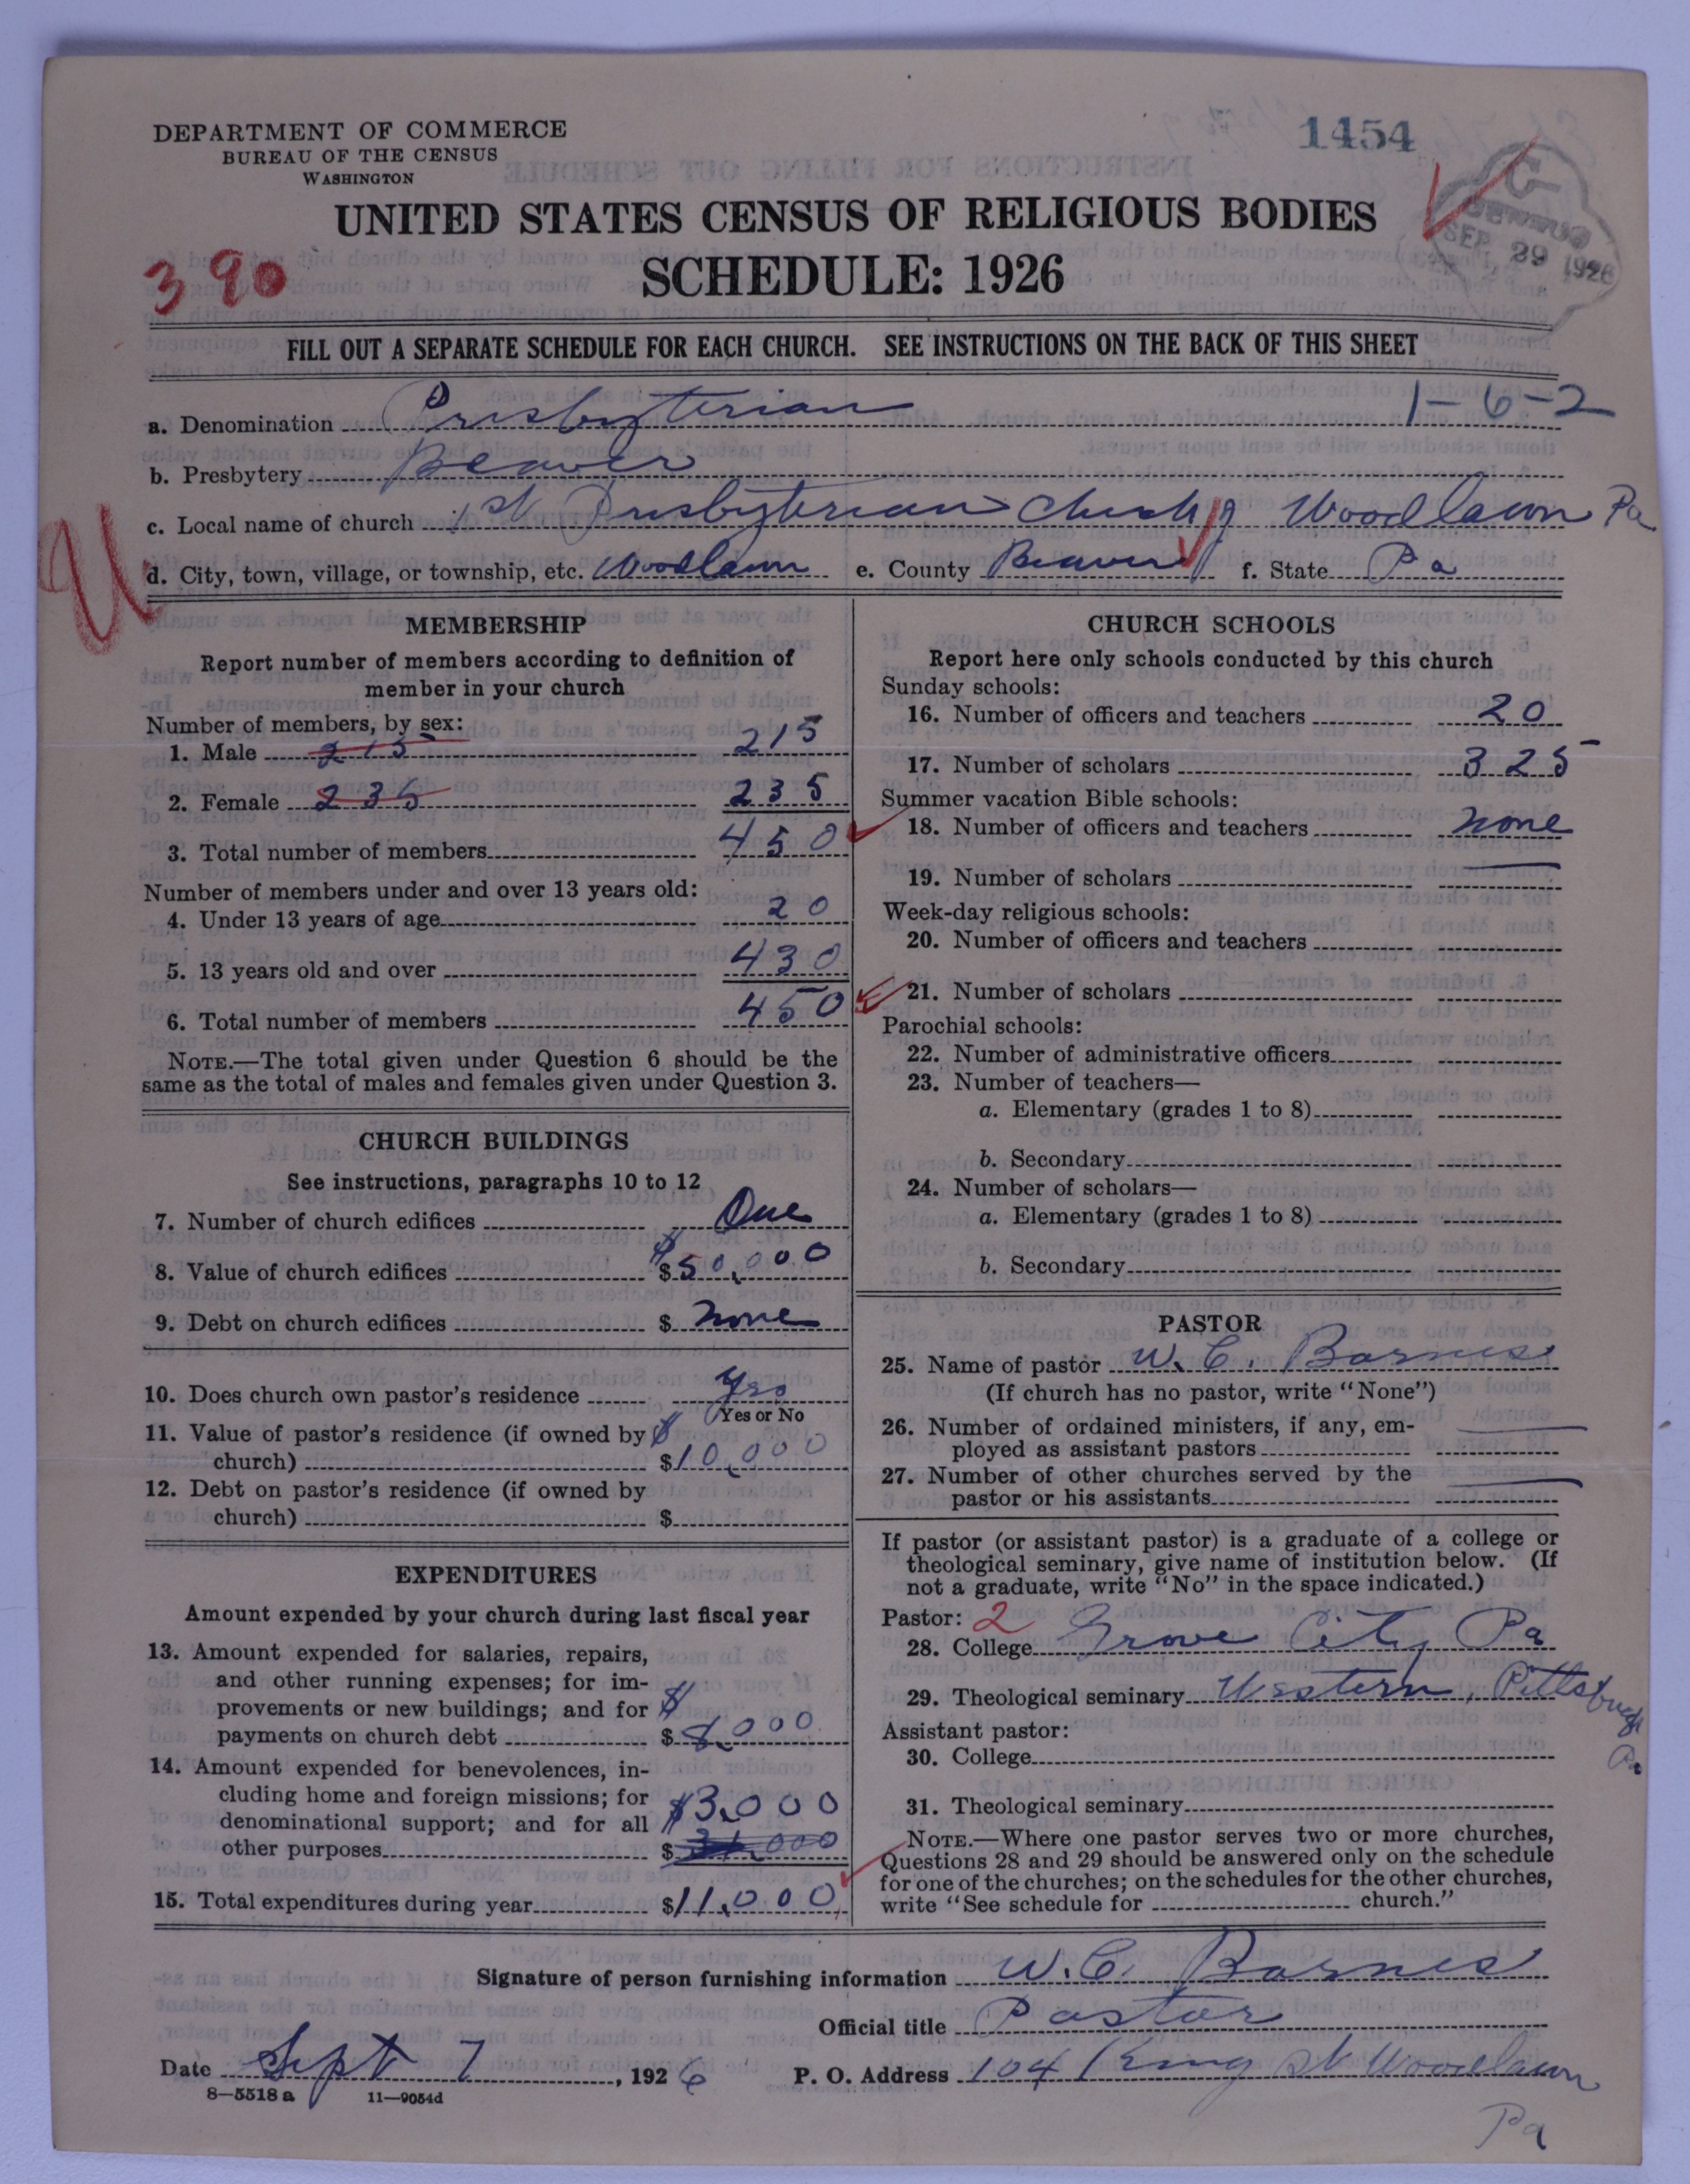 DEPARTMENT OF COMMERCE
BUREAU OF THE CENSUS
WASHINGTON
1454
CENSUS
SEP 29 1926
UNITED STATES CENSUS OF RELIGIOUS BODIES
SCHEDULE: 1926
390
FILL OUT A SEPARATE SCHEDULE FOR EACH CHURCH. SEE INSTRUCTIONS ON THE BACK OF THIS SHEET
a. Denomination Presbyterian 1-6-2
b. Presbytery Beaver
c. Local name of church 1st Presbyterian Church of Woodlawn Pa
d. City, town, village, or township, etc. Woodlawn e. County Beaver f. State Pa
MEMBERSHIP
Report number of members according to definition of
member in your church
Number of members, by sex:
1. Male 215 215
2. Female 235 235
3. Total number of members 450
Number of members under and over 13 years old:
4. Under 13 years of age 20
5. 13 years old and over 430
6. Total number of members 450
NOTE.—The total given under Question 6 should be the
same as the total of males and females given under Question 3.
CHURCH BUILDINGS
See instructions, paragraphs 10 to 12
7. Number of church edifices One
8. Value of church edifices $ $50,000
9. Debt on church edifices $ None
10. Does church own pastor's residence Yes
Yes or No
11. Value of pastor's residence (if owned by $
church) $10,000
12. Debt on pastor's residence (if owned by
church) $
EXPENDITURES
Amount expended by your church during last fiscal year
13. Amount expended for salaries, repairs,
and other running expenses; for im-
provements or new buildings; and for $
payments on church debt $8,000
14. Amount expended for benevolences, in-
cluding home and foreign missions; for
denominational support; and for all $3,000
other purposes $ 000
15. Total expenditures during year $11,000
CHURCH SCHOOLS
Report here only schools conducted by this church
Sunday schools:
16. Number of officers and teachers 20
17. Number of scholars 325
Summer vacation Bible schools:
18. Number of officers and teachers None
19. Number of scholars
Week-day religious schools:
20. Number of officers and teachers
21. Number of scholars
Parochial schools:
22. Number of administrative officers
23. Number of teachers—
a. Elementary (grades 1 to 8)
b. Secondary
24. Number of scholars—
a. Elementary (grades 1 to 8)
b. Secondary
PASTOR
25. Name of pastor W. C. Barnes
(If church has no pastor, write "None")
26. Number of ordained ministers, if any, em-
ployed as assistant pastors
27. Number of other churches served by the
pastor or his assistants
If pastor (or assistant pastor) is a graduate of a college or
theological seminary, give name of institution below. (If
not a graduate, write "No" in the space indicated.)
Pastor: 2
28. College Grove City Pa
29. Theological seminary Western, Pittsburgh
Pa
Assistant pastor:
30. College
31. Theological seminary
NOTE.—Where one pastor serves two or more churches,
Questions 28 and 29 should be answered only on the schedule
for one of the churches; on the schedules for the other churches,
write "See schedule for church."
Signature of person furnishing information W. C. Barnes
Official title Pastor
Date Sept 7, 1926 P. O. Address 104 King St Woodlawn
Pa
8—5518 a 11—9054d